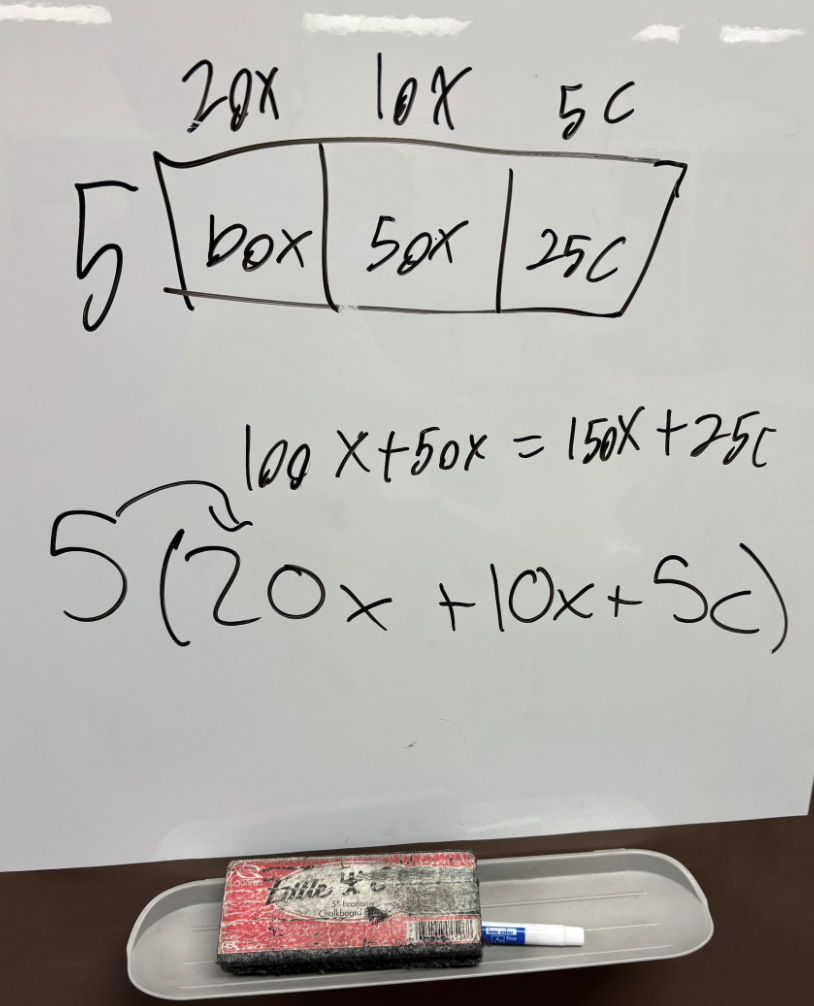 20x 10x 5c
5 100x 50x 25c
100x+50x = 150x+25c
5(20x +10x+5c)
Quartet
5" Economy
Chalkboard
Fine